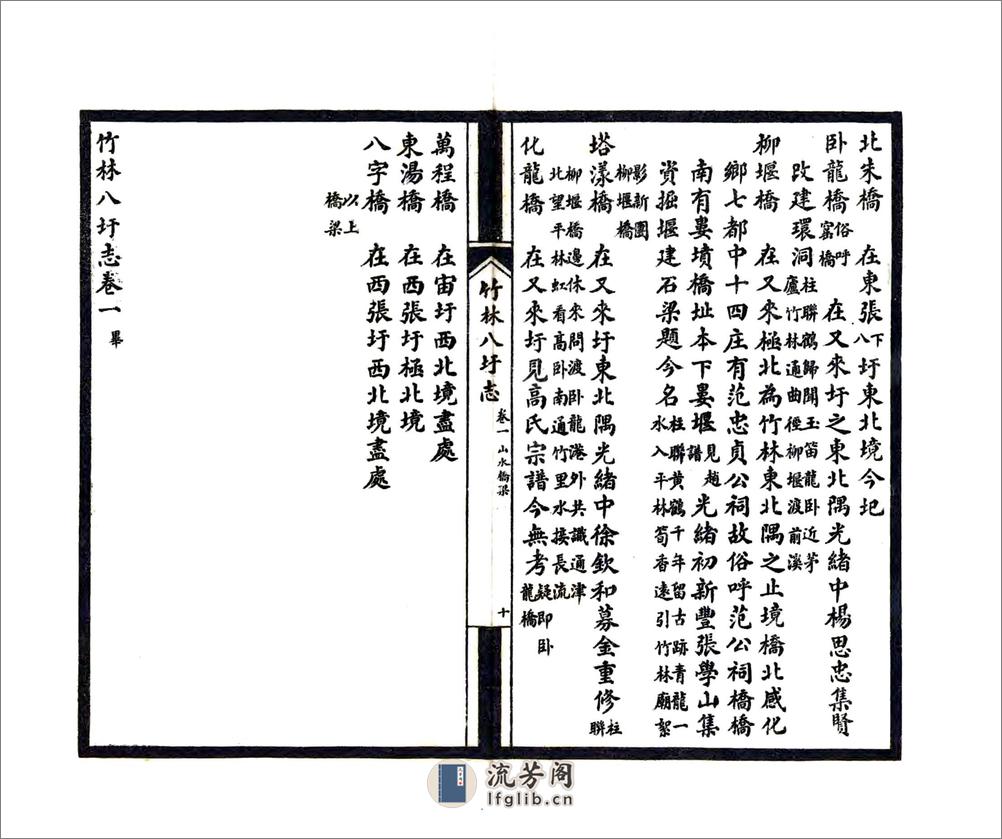 北朱橋 在東張下八圩東北境今圮
卧龍橋俗呼窰橋 在又來圩之東北隅光緒中楊思忠集賢
改建環洞柱聯鶴歸聞玉笛龍卧近茅廬竹林通曲徑柳堰渡前溪
柳堰橋 在又來極北為竹林東北隅之止境橋北感化
鄉七都中十四庄有范忠貞公祠故俗呼范公祠橋橋
南有婁墳橋址本下婁堰見趙譜光緒初新豐張學山集
資掘堰建石梁題今名柱聯黃鶴千年留古跡青龍一水入平林筍香遠引竹林廟絮
影新團柳堰橋
塔漾橋 在又來圩東北隅光緒中徐欽和募金重修柱聯
柳堰橋邊休來問渡卧龍港外共識通津北望平林虹看高卧南通竹里水接長流
化龍橋 在又來圩見高氏宗譜今無考疑即卧龍橋
竹林八圩志 卷一 山水橋梁 十
萬程橋 在宙圩西北境盡處
東湯橋 在西張圩極北境
八字橋 在西張圩西北境盡處
以上橋梁
竹林八圩志卷一 畢
流芳阁
lfglib.cn